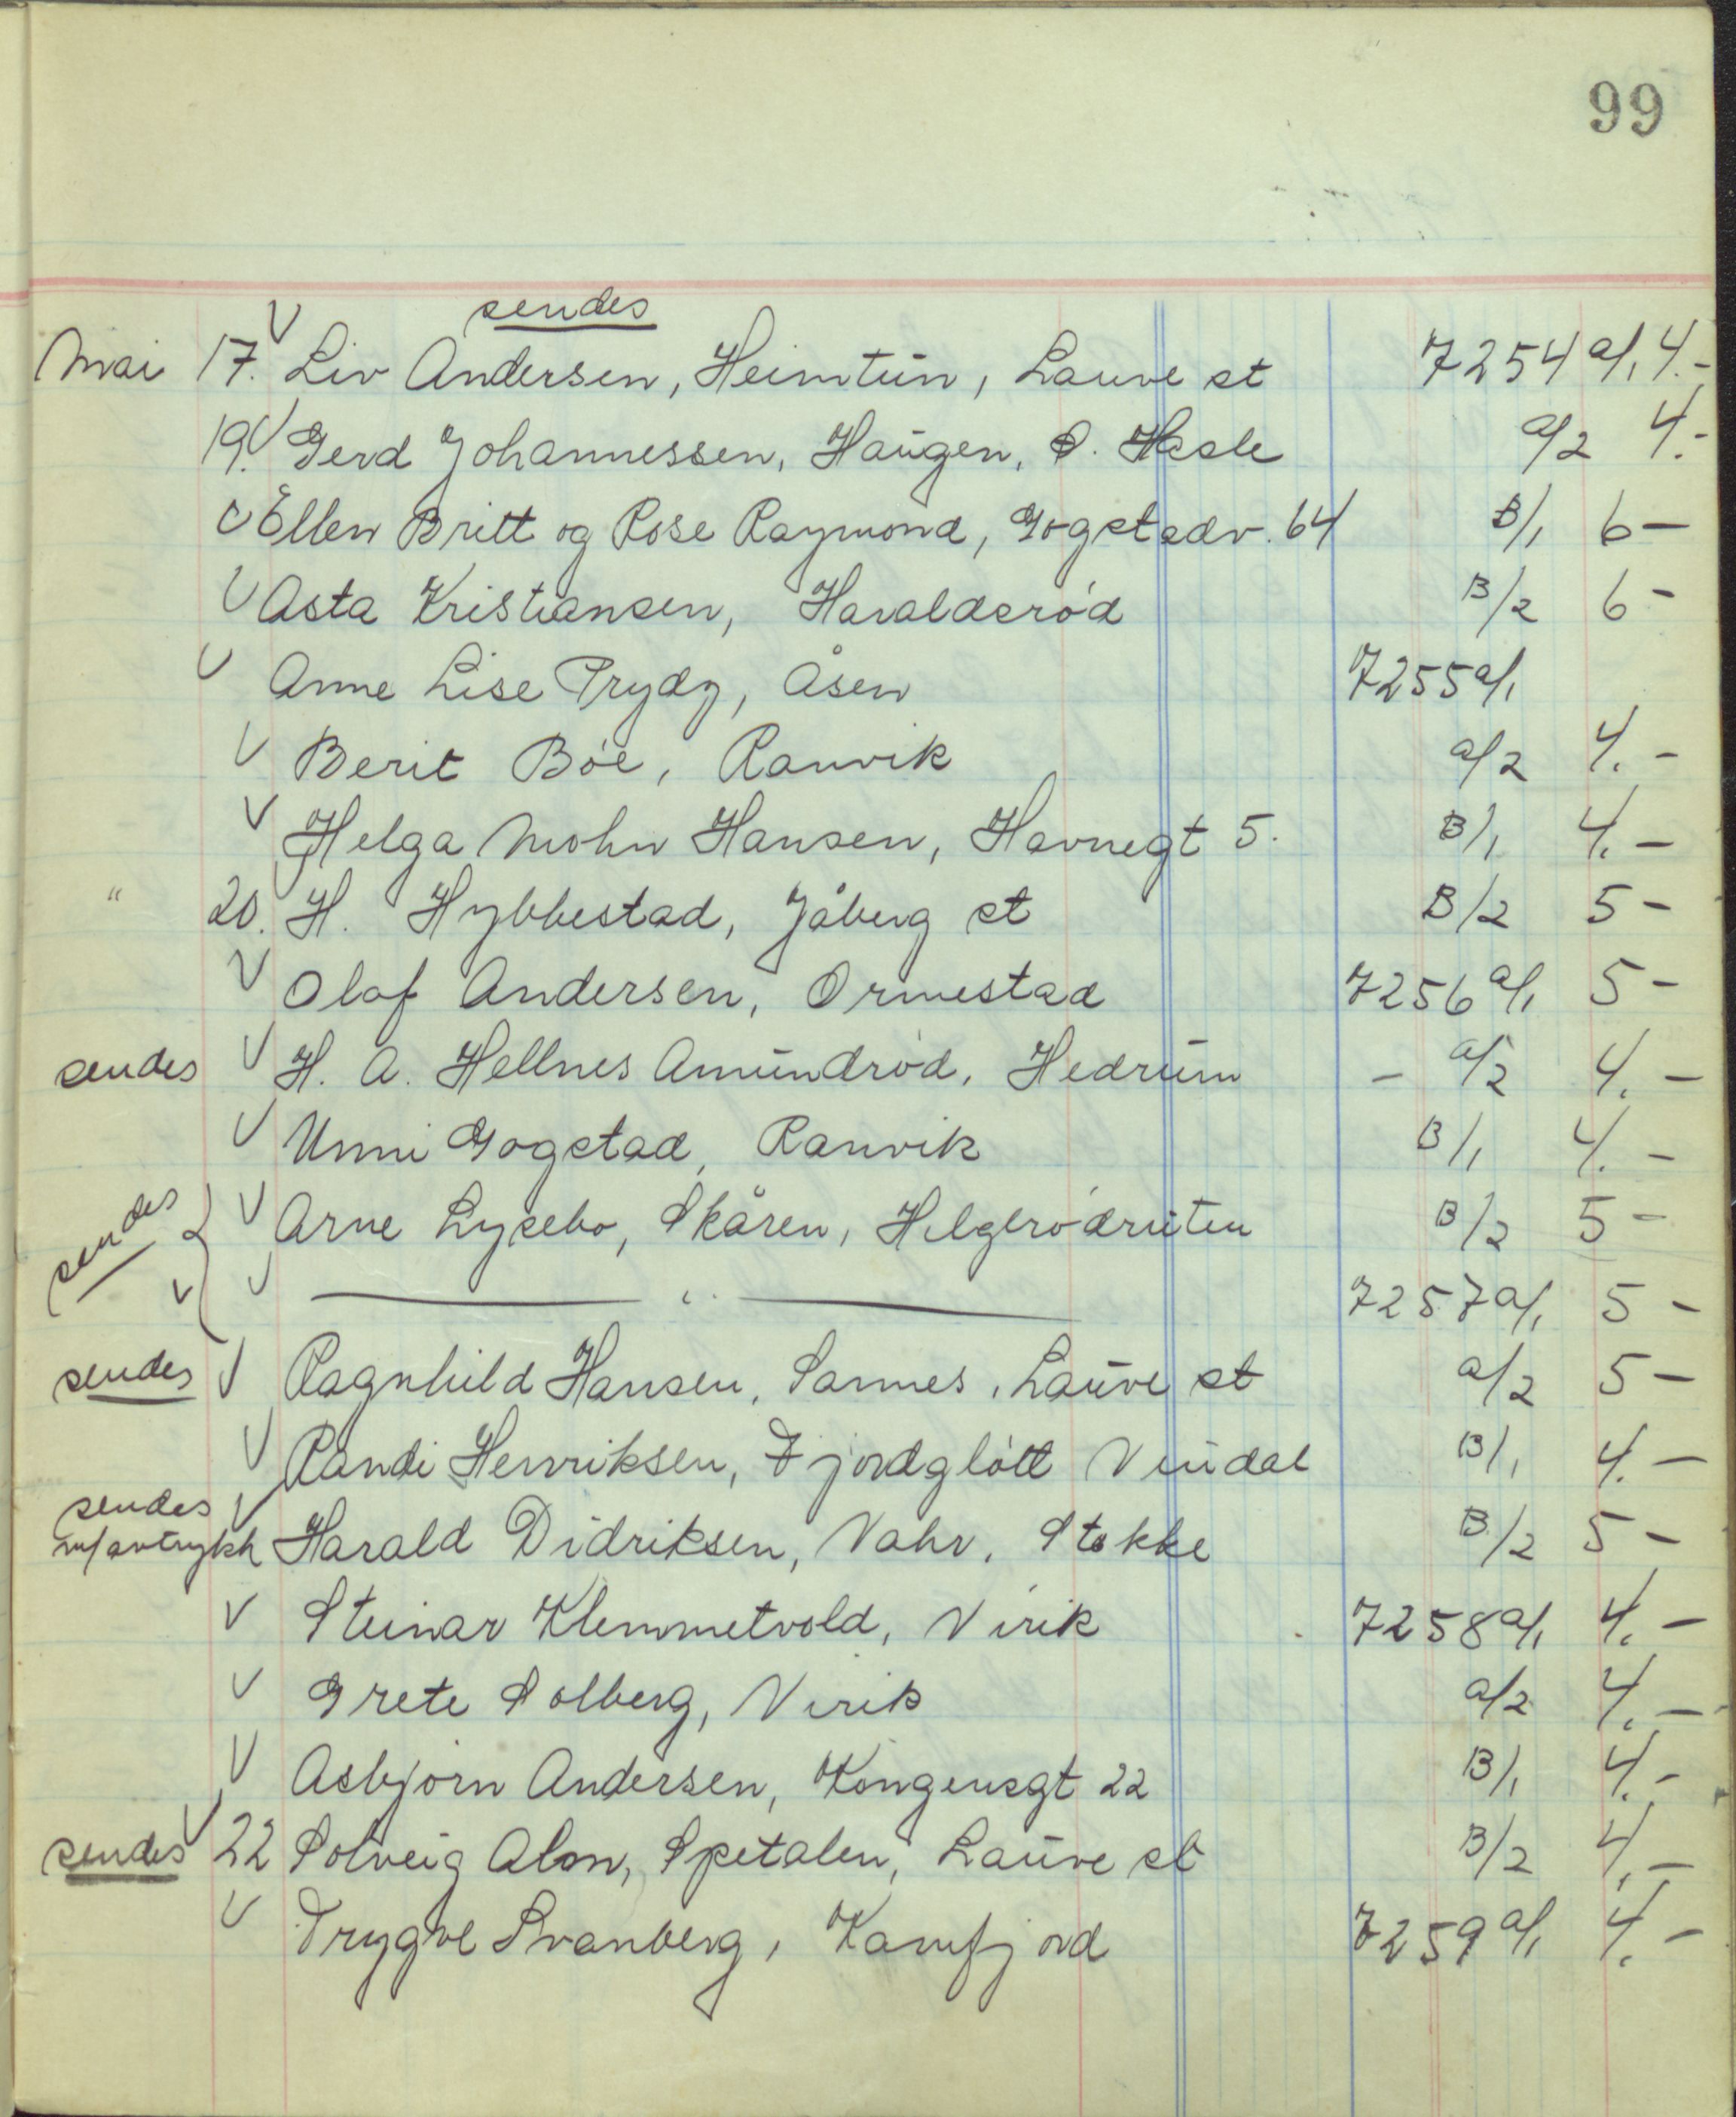 99
sendes
Mai 17. V Liv Andersen, Heimtun, Lauve st 7254 a/1 4.-
19. V Gerd Johannessen, Haugen, Ø. Hasle a/2 4.-
V Ellen Britt og Rose Raymond, Gogstadv. 64 B/1 6 -
V Asta Kristiansen, Haraldsrød B/2 6 -
V Anne Lise Prydz, Åsen 7255 a/1
V Berit Bøe, Ranvik a/2 4. -
V Helga Mohn Hansen, Havnegt 5. B/1 4. -
" 20. H. Hybbestad, Jåberg st B/2 5 -
V Olaf Andersen, Ormestad 7256 a/1 5 -
sendes V H. A. Hellnes Amundrød, Hedrum - a/2 4. -
V Unni Gogstad, Ranvik B/1 4. -
sendes V Arne Lysebo, Skåren, Helgerødruten B/2 5 -
V V — " — 7257 a/1 5 -
sendes V Ragnhild Hansen, Sannes, Lauve st a/2 5 -
V Randi Henriksen, Fjordgløtt Vindal B/1 4. -
sendes V
m/avtrykk Harald Didriksen, Vahr, Stokke B/2 5 -
V Steinar Klemmetvold, Virik 7258 a/1 4. -
V Grete Solberg, Virik a/2 4. -
V Asbjørn Andersen, Kongensgt 22 B/1 4. -
sendes V 22 Solveig Alm, Spetalen, Lauve st B/2 4. -
V Trygve Svanberg, Kamfjord 7259 a/1 4. -